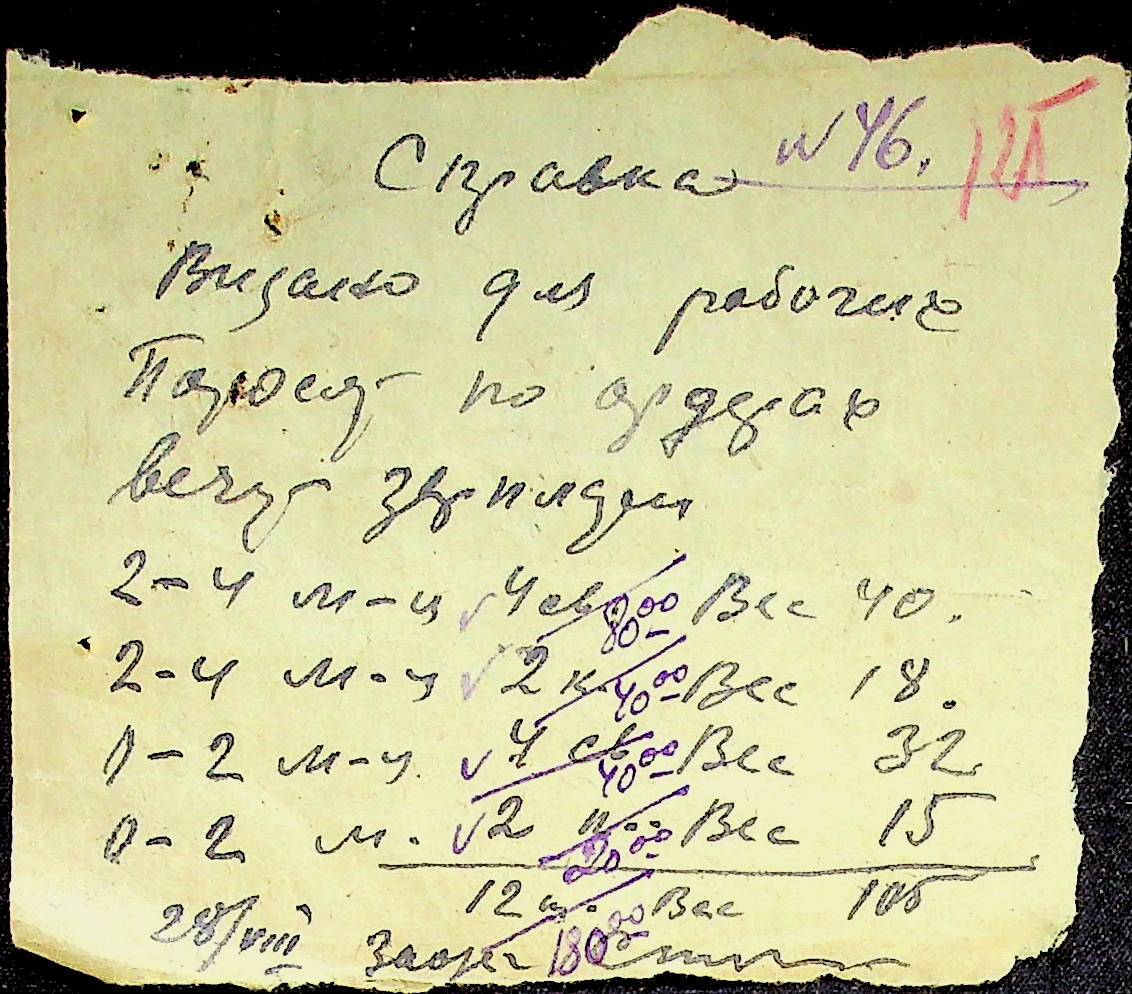 Справка № 46. 121
Видано для рабочих
Поросят по ордерах
2-4 м-ц 4 св 80⁰⁰ Вес 40.
2-4 м-ц 2 к. 40⁰⁰ Вес 18.
0-2 м-ц. 4 св 40⁰⁰ Вес 32
0-2 м. 2 к.. 20⁰⁰ Вес 15
12 ш. Вес 105
28/VIII 180⁰⁰